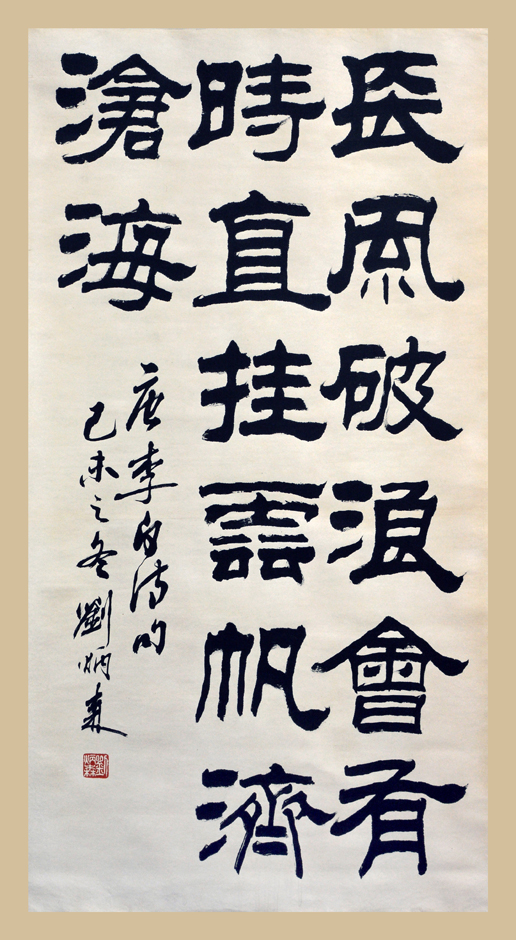 長風破浪會有
時直挂雲帆濟
滄海
唐李白詩句
己未之冬劉炳森